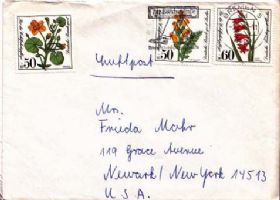 50
50
60
Luftpost
Mrs.
Frieda Mohr
119 Grace Avenue
Newark/New York 14513
U.S.A.